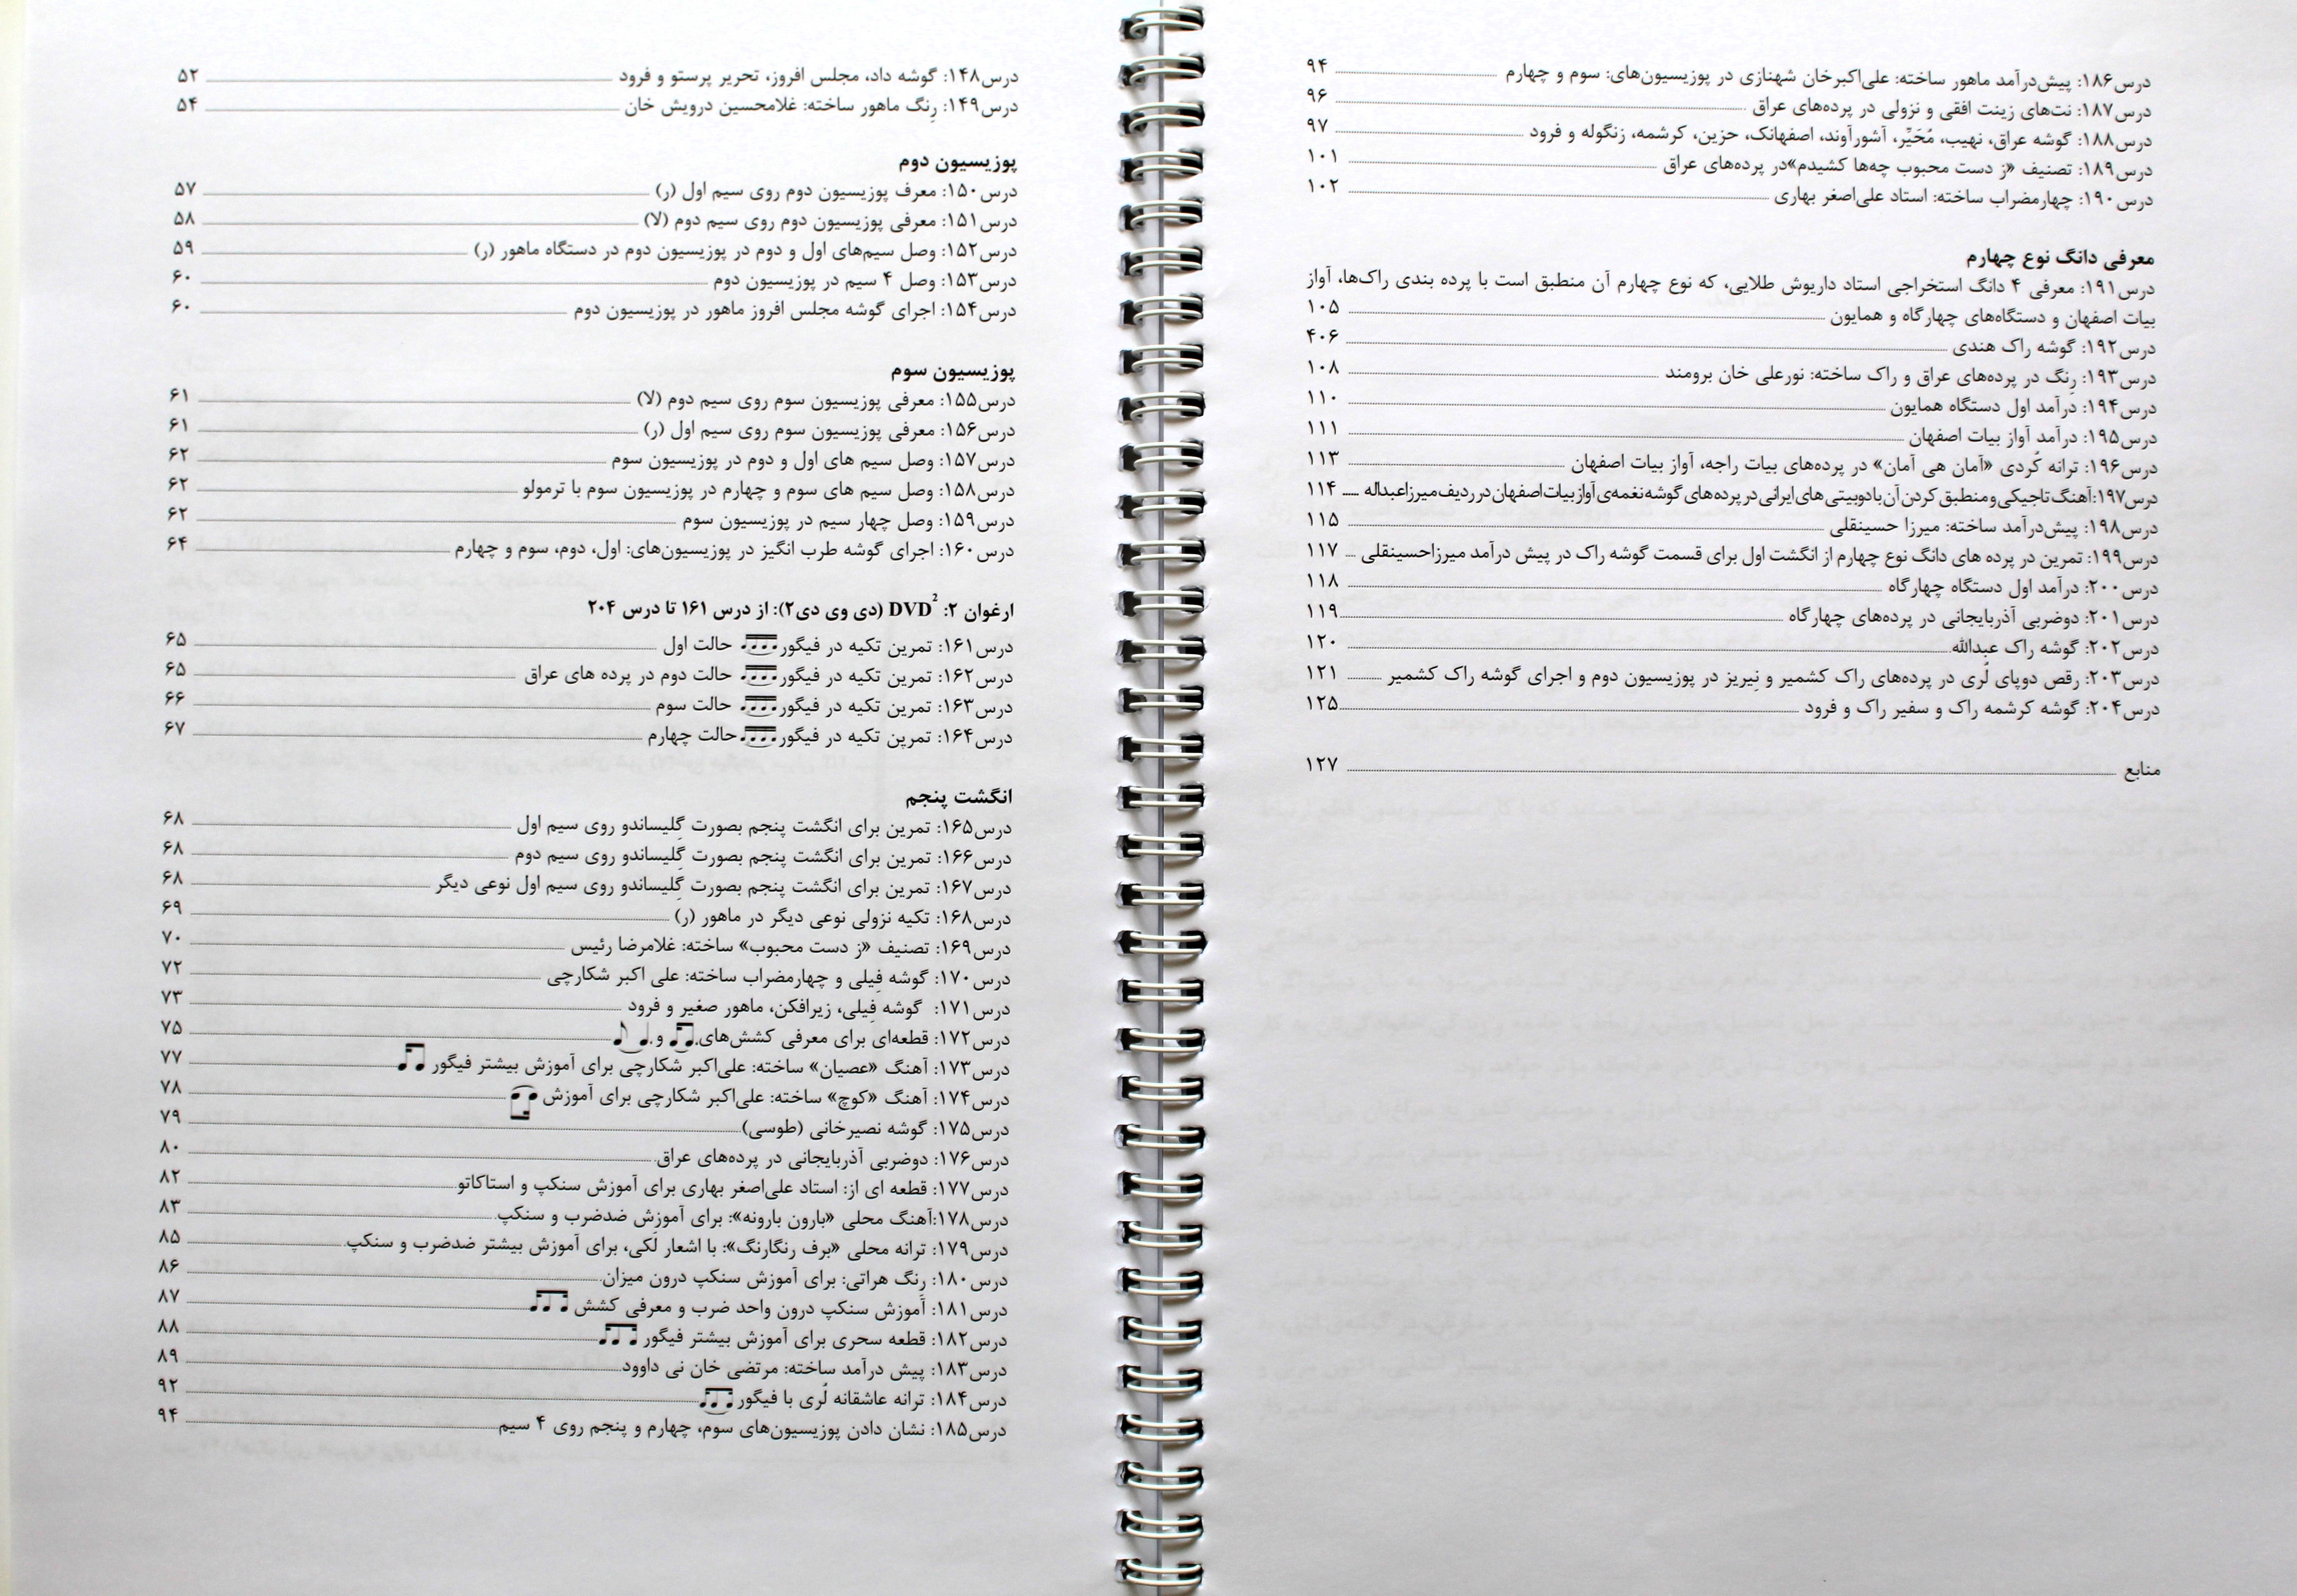 درس۱۴۸: گوشه داد، مجلس افروز، تحریر پرستو و فرود ۵۲
درس۱۴۹: رِنگ ماهور ساخته: غلامحسین درویش خان ۵۴
پوزیسیون دوم
درس۱۵۰: معرف پوزیسیون دوم روی سیم اول (ر) ۵۷
درس۱۵۱: معرفی پوزیسیون دوم روی سیم دوم (لا) ۵۸
درس۱۵۲: وصل سیم‌های اول و دوم در پوزیسیون دوم در دستگاه ماهور (ر) ۵۹
درس۱۵۳: وصل ۴ سیم در پوزیسیون دوم ۶۰
درس۱۵۴: اجرای گوشه مجلس افروز ماهور در پوزیسیون دوم ۶۰
پوزیسیون سوم
درس۱۵۵: معرفی پوزیسیون سوم روی سیم دوم (لا) ۶۱
درس۱۵۶: معرفی پوزیسیون سوم روی سیم اول (ر) ۶۱
درس۱۵۷: وصل سیم های اول و دوم در پوزیسیون سوم ۶۲
درس۱۵۸: وصل سیم های سوم و چهارم در پوزیسیون سوم با ترمولو ۶۲
درس۱۵۹: وصل چهار سیم در پوزیسیون سوم ۶۲
درس۱۶۰: اجرای گوشه طرب انگیز در پوزیسیون‌های: اول، دوم، سوم و چهارم ۶۴
ارغوان ۲: DVD² (دی وی دی۲): از درس ۱۶۱ تا درس ۲۰۴
درس۱۶۱: تمرین تکیه در فیگور حالت اول ۶۵
درس۱۶۲: تمرین تکیه در فیگور حالت دوم در پرده های عراق ۶۵
درس۱۶۳: تمرین تکیه در فیگور حالت سوم ۶۶
درس۱۶۴: تمرین تکیه در فیگور حالت چهارم ۶۷
انگشت پنجم
درس۱۶۵: تمرین برای انگشت پنجم بصورت گِلیساندو روی سیم اول ۶۸
درس۱۶۶: تمرین برای انگشت پنجم بصورت گِلیساندو روی سیم دوم ۶۸
درس۱۶۷: تمرین برای انگشت پنجم بصورت گِلیساندو روی سیم اول نوعی دیگر ۶۸
درس۱۶۸: تکیه نزولی نوعی دیگر در ماهور (ر) ۶۹
درس۱۶۹: تصنیف «ز دست محبوب» ساخته: غلامرضا رئیس ۷۰
درس۱۷۰: گوشه فِیلی و چهارمضراب ساخته: علی اکبر شکارچی ۷۲
درس۱۷۱: گوشه فِیلی، زیرافکن، ماهور صغیر و فرود ۷۳
درس۱۷۲: قطعه‌ای برای معرفی کشش‌های و ۷۵
درس۱۷۳: آهنگ «عصیان» ساخته: علی‌اکبر شکارچی برای آموزش بیشتر فیگور ۷۷
درس۱۷۴: آهنگ «کوچ» ساخته: علی‌اکبر شکارچی برای آموزش ۷۸
درس۱۷۵: گوشه نصیرخانی (طوسی) ۷۹
درس۱۷۶: دوضربی آذربایجانی در پرده‌های عراق ۸۰
درس۱۷۷: قطعه ای از: استاد علی‌اصغر بهاری برای آموزش سنکپ و استاکاتو ۸۲
درس۱۷۸:آهنگ محلی «بارون بارونه»: برای آموزش ضدضرب و سنکپ ۸۳
درس۱۷۹: ترانه محلی «برف رنگارنگ»: با اشعار لَکی، برای آموزش بیشتر ضدضرب و سنکپ ۸۵
درس۱۸۰: رِنگ هراتی: برای آموزش سنکپ درون میزان ۸۶
درس۱۸۱: آموزش سنکپ درون واحد ضرب و معرفی کشش ۸۷
درس۱۸۲: قطعه سحری برای آموزش بیشتر فیگور ۸۸
درس۱۸۳: پیش درآمد ساخته: مرتضی خان نی داوود ۸۹
درس۱۸۴: ترانه عاشقانه لُری با فیگور ۹۲
درس۱۸۵: نشان دادن پوزیسیون‌های سوم، چهارم و پنجم روی ۴ سیم ۹۴
درس۱۸۶: پیش‌درآمد ماهور ساخته: علی‌اکبرخان شهنازی در پوزیسیون‌های: سوم و چهارم ۹۴
درس۱۸۷: نت‌های زینت افقی و نزولی در پرده‌های عراق ۹۶
درس۱۸۸: گوشه عراق، نهیب، مُحَیِّر، آشورآوند، اصفهانک، حزین، کرشمه، زنگوله و فرود ۹۷
درس۱۸۹: تصنیف «ز دست محبوب چه‌ها کشیدم»در پرده‌های عراق ۱۰۱
درس۱۹۰: چهارمضراب ساخته: استاد علی‌اصغر بهاری ۱۰۲
معرفی دانگ نوع چهارم
درس۱۹۱: معرفی ۴ دانگ استخراجی استاد داریوش طلایی، که نوع چهارم آن منطبق است با پرده بندی راک‌ها، آواز
بیات اصفهان و دستگاه‌های چهارگاه و همایون ۱۰۵
درس۱۹۲: گوشه راک هندی ۴۰۶
درس۱۹۳: رِنگ در پرده‌های عراق و راک ساخته: نورعلی خان برومند ۱۰۸
درس۱۹۴: درآمد اول دستگاه همایون ۱۱۰
درس۱۹۵: درآمد آواز بیات اصفهان ۱۱۱
درس۱۹۶: ترانه کُردی «آمان هی آمان» در پرده‌های بیات راجه، آواز بیات اصفهان ۱۱۳
درس۱۹۷: آهنگ تاجیکی و منطبق کردن آن با دوبیتی های ایرانی در پرده های گوشه نغمه‌ی آواز بیات اصفهان در ردیف میرزا عبداله ۱۱۴
درس۱۹۸: پیش‌درآمد ساخته: میرزا حسینقلی ۱۱۵
درس۱۹۹: تمرین در پرده های دانگ نوع چهارم از انگشت اول برای قسمت گوشه راک در پیش درآمد میرزاحسینقلی ۱۱۷
درس۲۰۰: درآمد اول دستگاه چهارگاه ۱۱۸
درس۲۰۱: دوضربی آذربایجانی در پرده‌های چهارگاه ۱۱۹
درس۲۰۲: گوشه راک عبدالله ۱۲۰
درس۲۰۳: رقص دوپای لُری در پرده‌های راک کشمیر و نِیریز در پوزیسیون دوم و اجرای گوشه راک کشمیر ۱۲۱
درس۲۰۴: گوشه کرشمه راک و سفیر راک و فرود ۱۲۵
منابع ۱۲۷